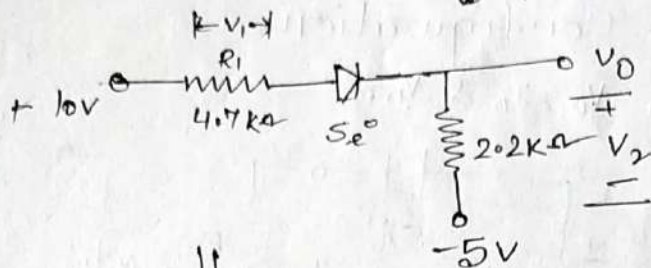 V₁
R₁
+ 10V
4.7KΩ
Se°
V₀
+
2.2KΩ
V₂
−
-5V